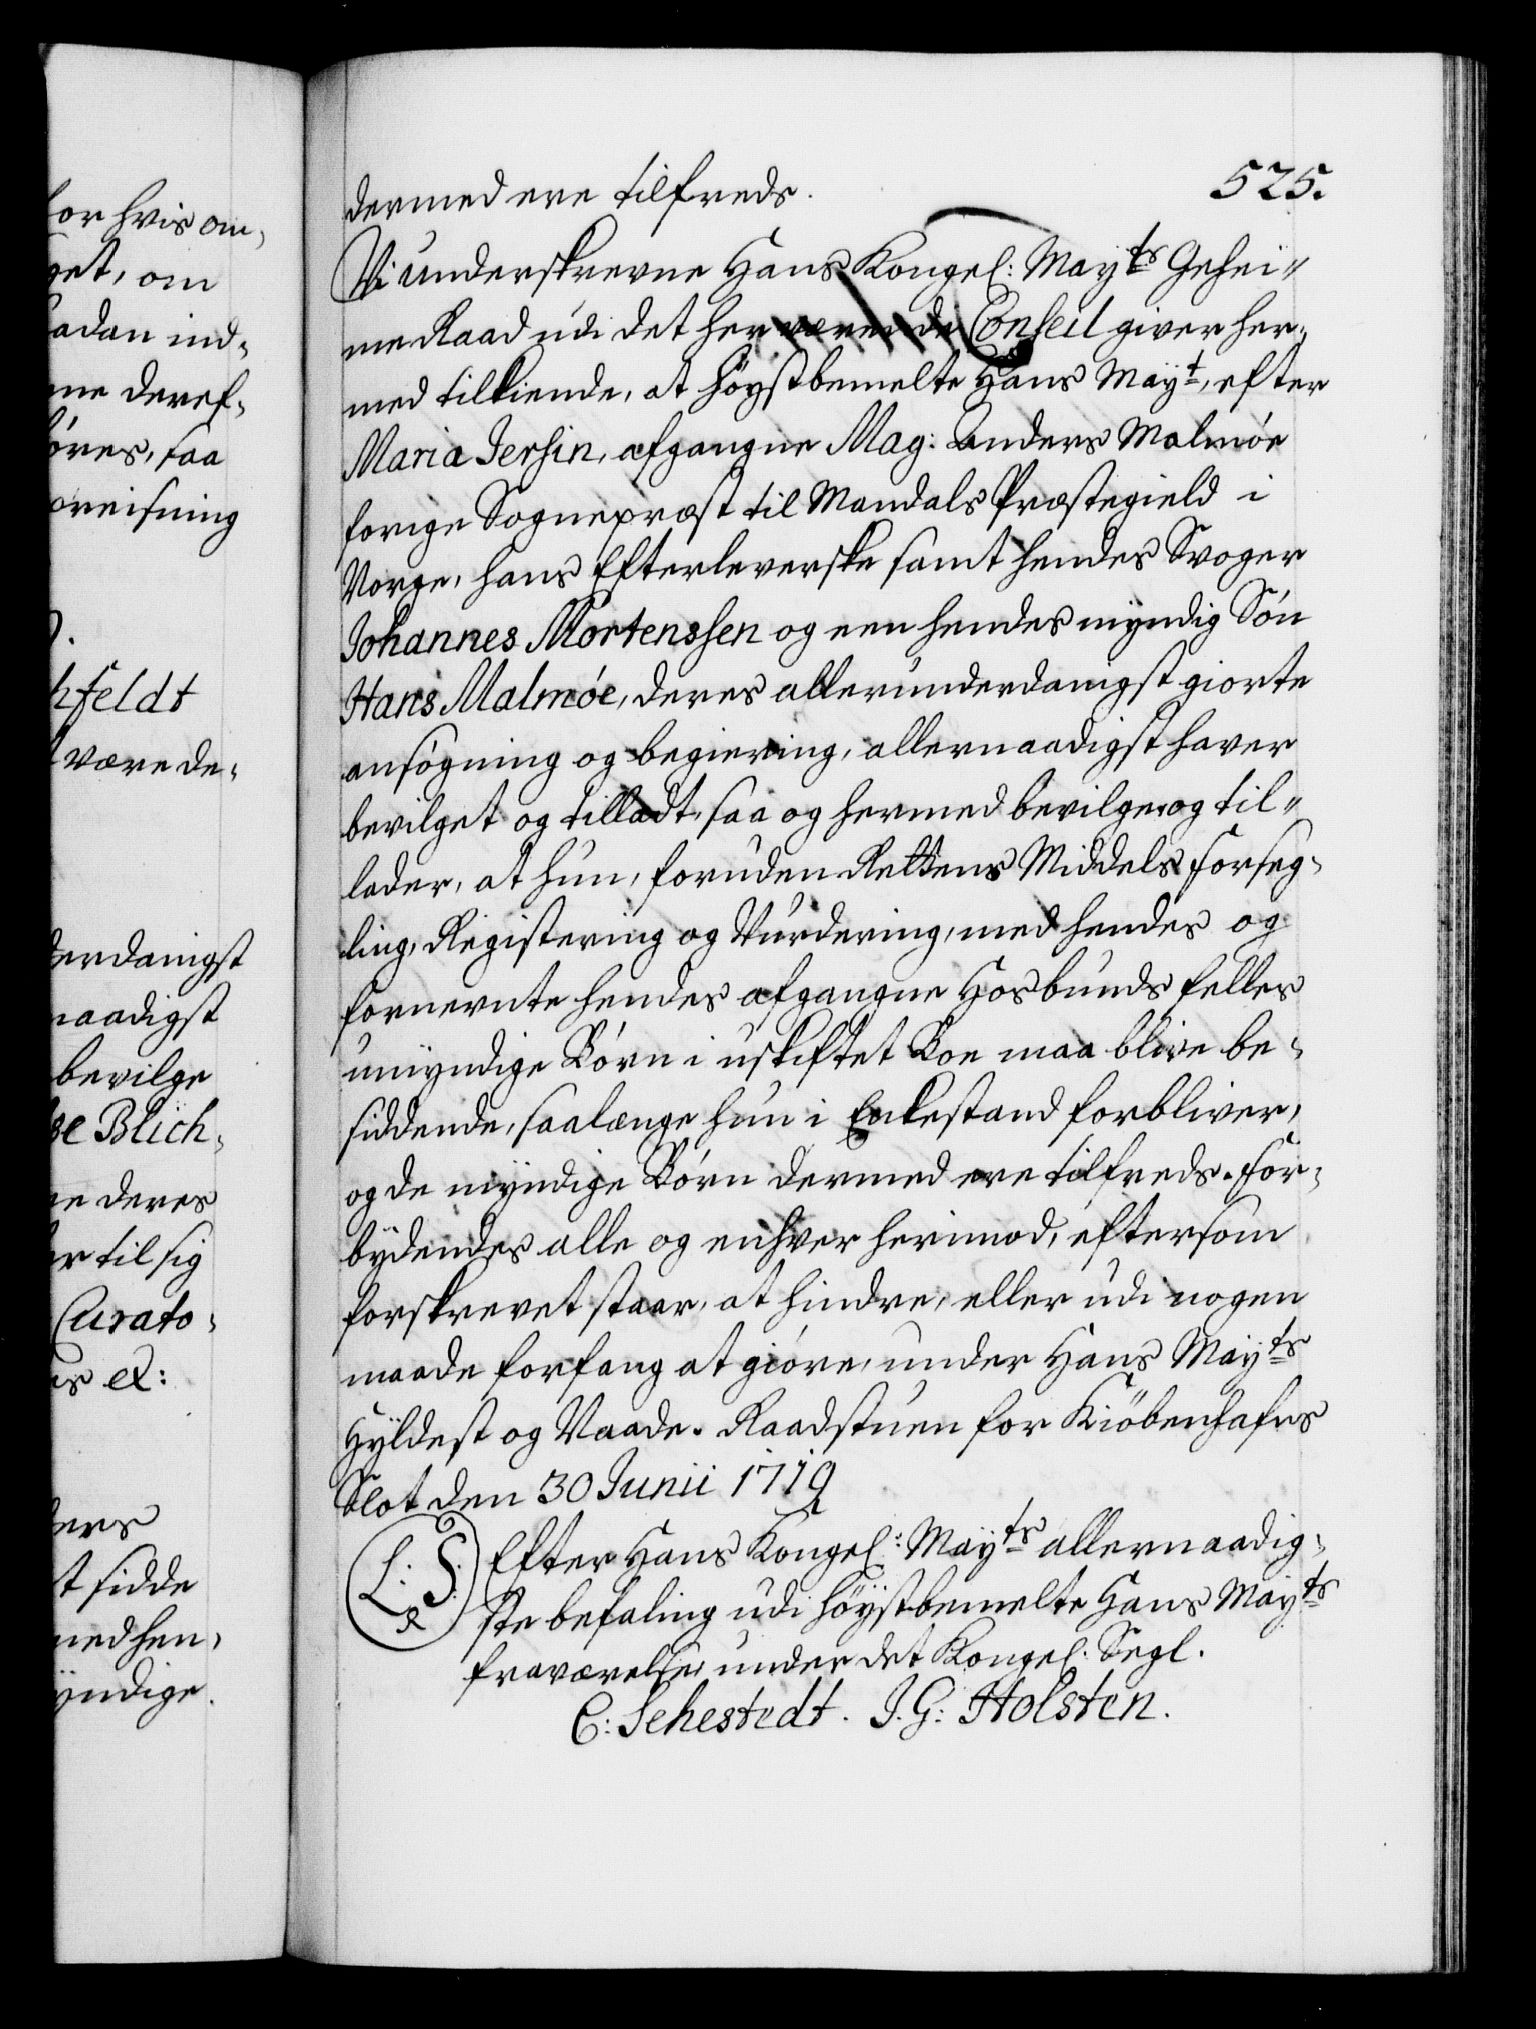 for hvis om¬
get, om
saadan ind¬
ne deref¬
öres, saa
ørnisning
hfeldt
være de¬
derdanigst
naadigst
bevilge
se Blich¬
ne deres
er til sig
Curato¬
us &:
ders
st sidde
med hen¬
ÿndige.
525.
dermed ere tilfreds.
Vi underskrevne Hans Kongel: Mayts Gehei¬
me Raad udi det herværende Conseil giver her¬
med tilkiende, at höystbemelte Hans Mayt, efter
Maria Jersin, afgangne Mag: Anders Malmøe
forige Sognepræst til Mandals Præstegield i
Norge, hans Efterleverske samt hendes Svoger
Johannes Mortenssen og een hendes myndig Sön
Hans Malmöe, deres allerunderdanigst giorte
ansögning og begiering, allernaadigst haver
bevilget og tilladt, saa og hermed bevilger og til¬
lader, at hun, foruden Rettens Middels Forseg¬
ling, Registering og Vurdering, med hendes og
fornevnte hendes afgangne Hosbunds felles
umÿndige Börn i uskiftet Boe maa blive be¬
siddende, saalænge hun i Enkestand forbliver,
og de mÿndige Börn dermed ere tilfreds. For¬
bÿdendes alle og enhver herimod, eftersom
forskrevet staar, at hindre, eller udi nogen
maade forfang at giöre, under Hans Mayts
Hÿldest og Naade. Raadstuen for Kiöbenhafns
Slot den 30 Junii 1719
L. S.
Efter Hans Kongel: Mayts allernaadig¬
ste befaling udi höystbemelte Hans Mayts
fraværelse, under det Kongel. Segl.
C: Sehestedt. J. G: Holsten.